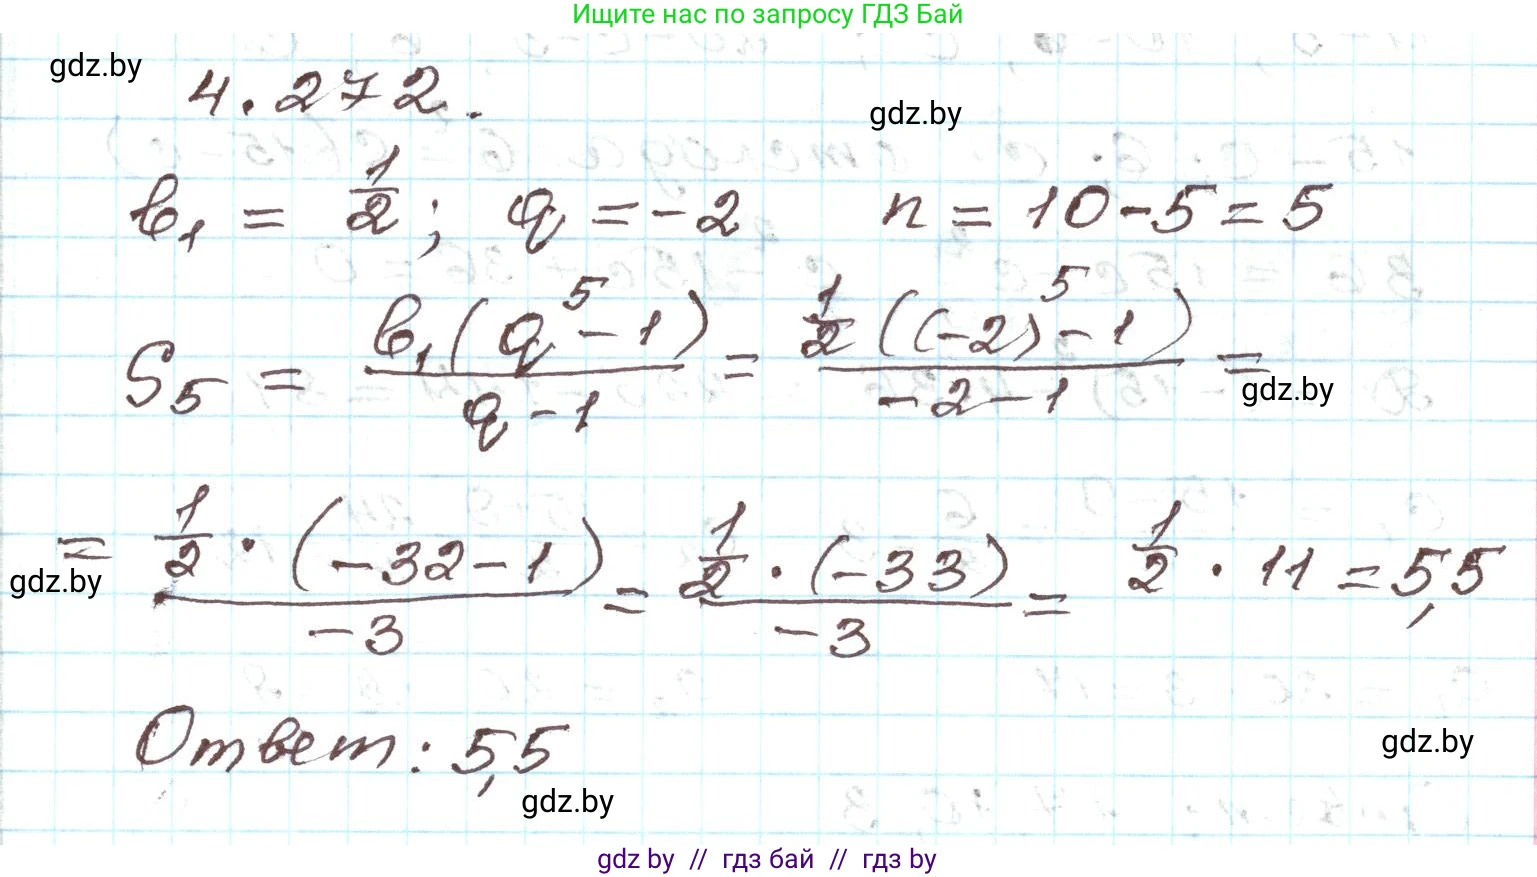 Ищите нас по запросу ГДЗ Бай
gdz.by
4.272.
gdz.by
b₁ = 1/2; q = -2 n = 10-5 = 5
S₅ = b₁(q⁵-1)/(q-1) = 1/2((-2)⁵-1)/(-2-1) =
gdz.by
= 1/2·(-32-1)/(-3) = 1/2·(-33)/(-3) = 1/2·11 = 5,5
gdz.by
Ответ: 5,5
gdz.by
gdz.by
gdz by // гдз бай // гдз by